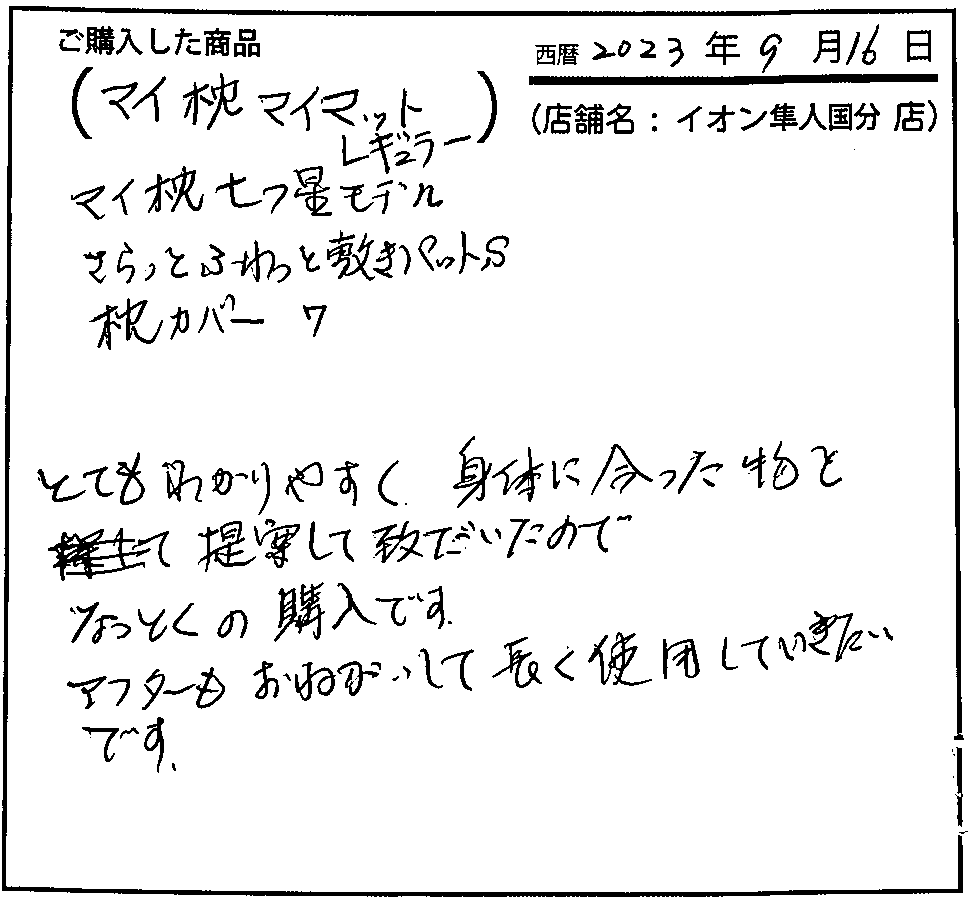 ご購入した商品
西暦 2023 年 9 月 16 日
(マイ枕 マイマット
レギュラー)
(店舗名: イオン隼人国分 店)
マイ枕 七つ星モデル
さらっとふわっと敷きパットS
枕カバー 7
とてもわかりやすく 身体に合った物を
提案して致だいたので
なっとくの購入です.
アフターもおねがいして長く使用していきたい
です.